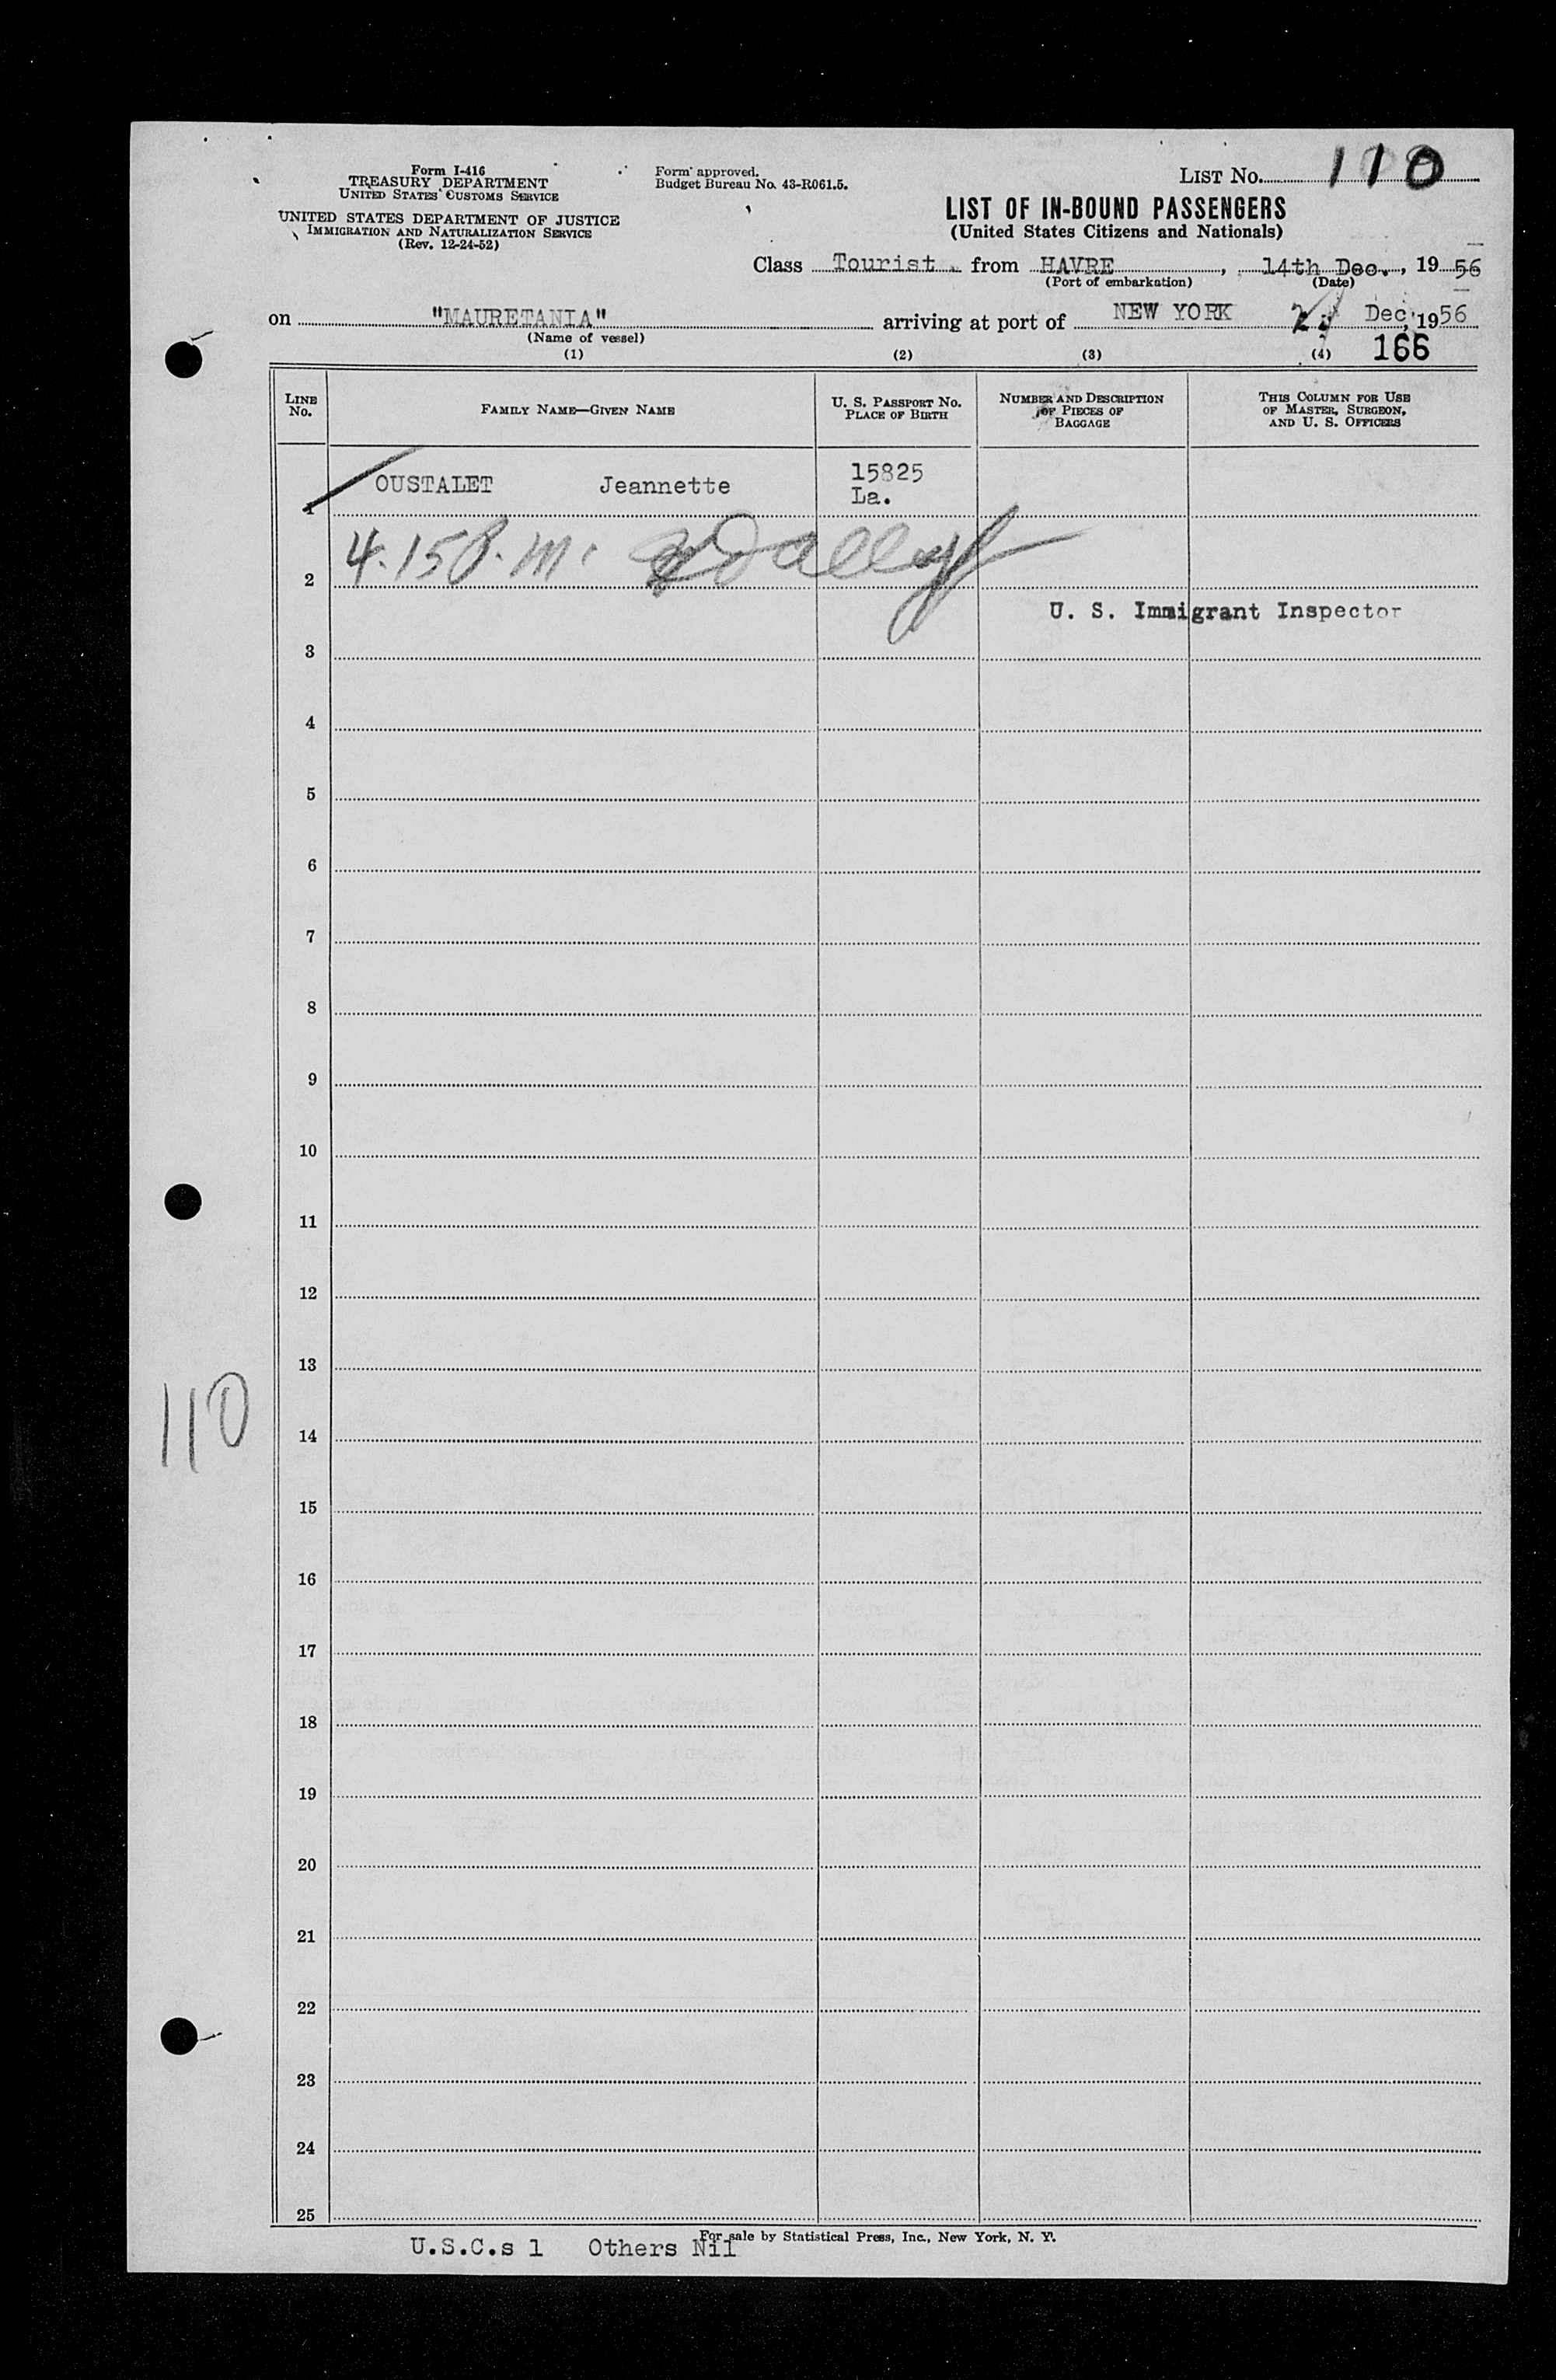 Form I-416
TREASURY DEPARTMENT
UNITED STATES CUSTOMS SERVICE
UNITED STATES DEPARTMENT OF JUSTICE
IMMIGRATION AND NATURALIZATION SERVICE
(Rev. 12-24-52)
Form approved.
Budget Bureau No. 43-R061.5.
LIST NO. 110
LIST OF IN-BOUND PASSENGERS
(United States Citizens and Nationals)
Class Tourist from HAVRE, 14th Dec., 1956
(Port of embarkation) (Date)
on "MAURETANIA" arriving at port of NEW YORK Dec, 1956
(Name of vessel)
(1) (2) (3) (4) 166
LINE NO. FAMILY NAME—GIVEN NAME U. S. PASSPORT NO. PLACE OF BIRTH NUMBER AND DESCRIPTION OF PIECES OF BAGGAGE THIS COLUMN FOR USE OF MASTER, SURGEON, AND U. S. OFFICERS
1 OUSTALET Jeannette 15825 La.
2 4.15 P.M.
U. S. Immigrant Inspector
3
4
5
6
7
8
9
10
11
12
13
14
110
15
16
17
18
19
20
21
22
23
24
25
For sale by Statistical Press, Inc., New York, N. Y.
U.S.C.s 1 Others Nil